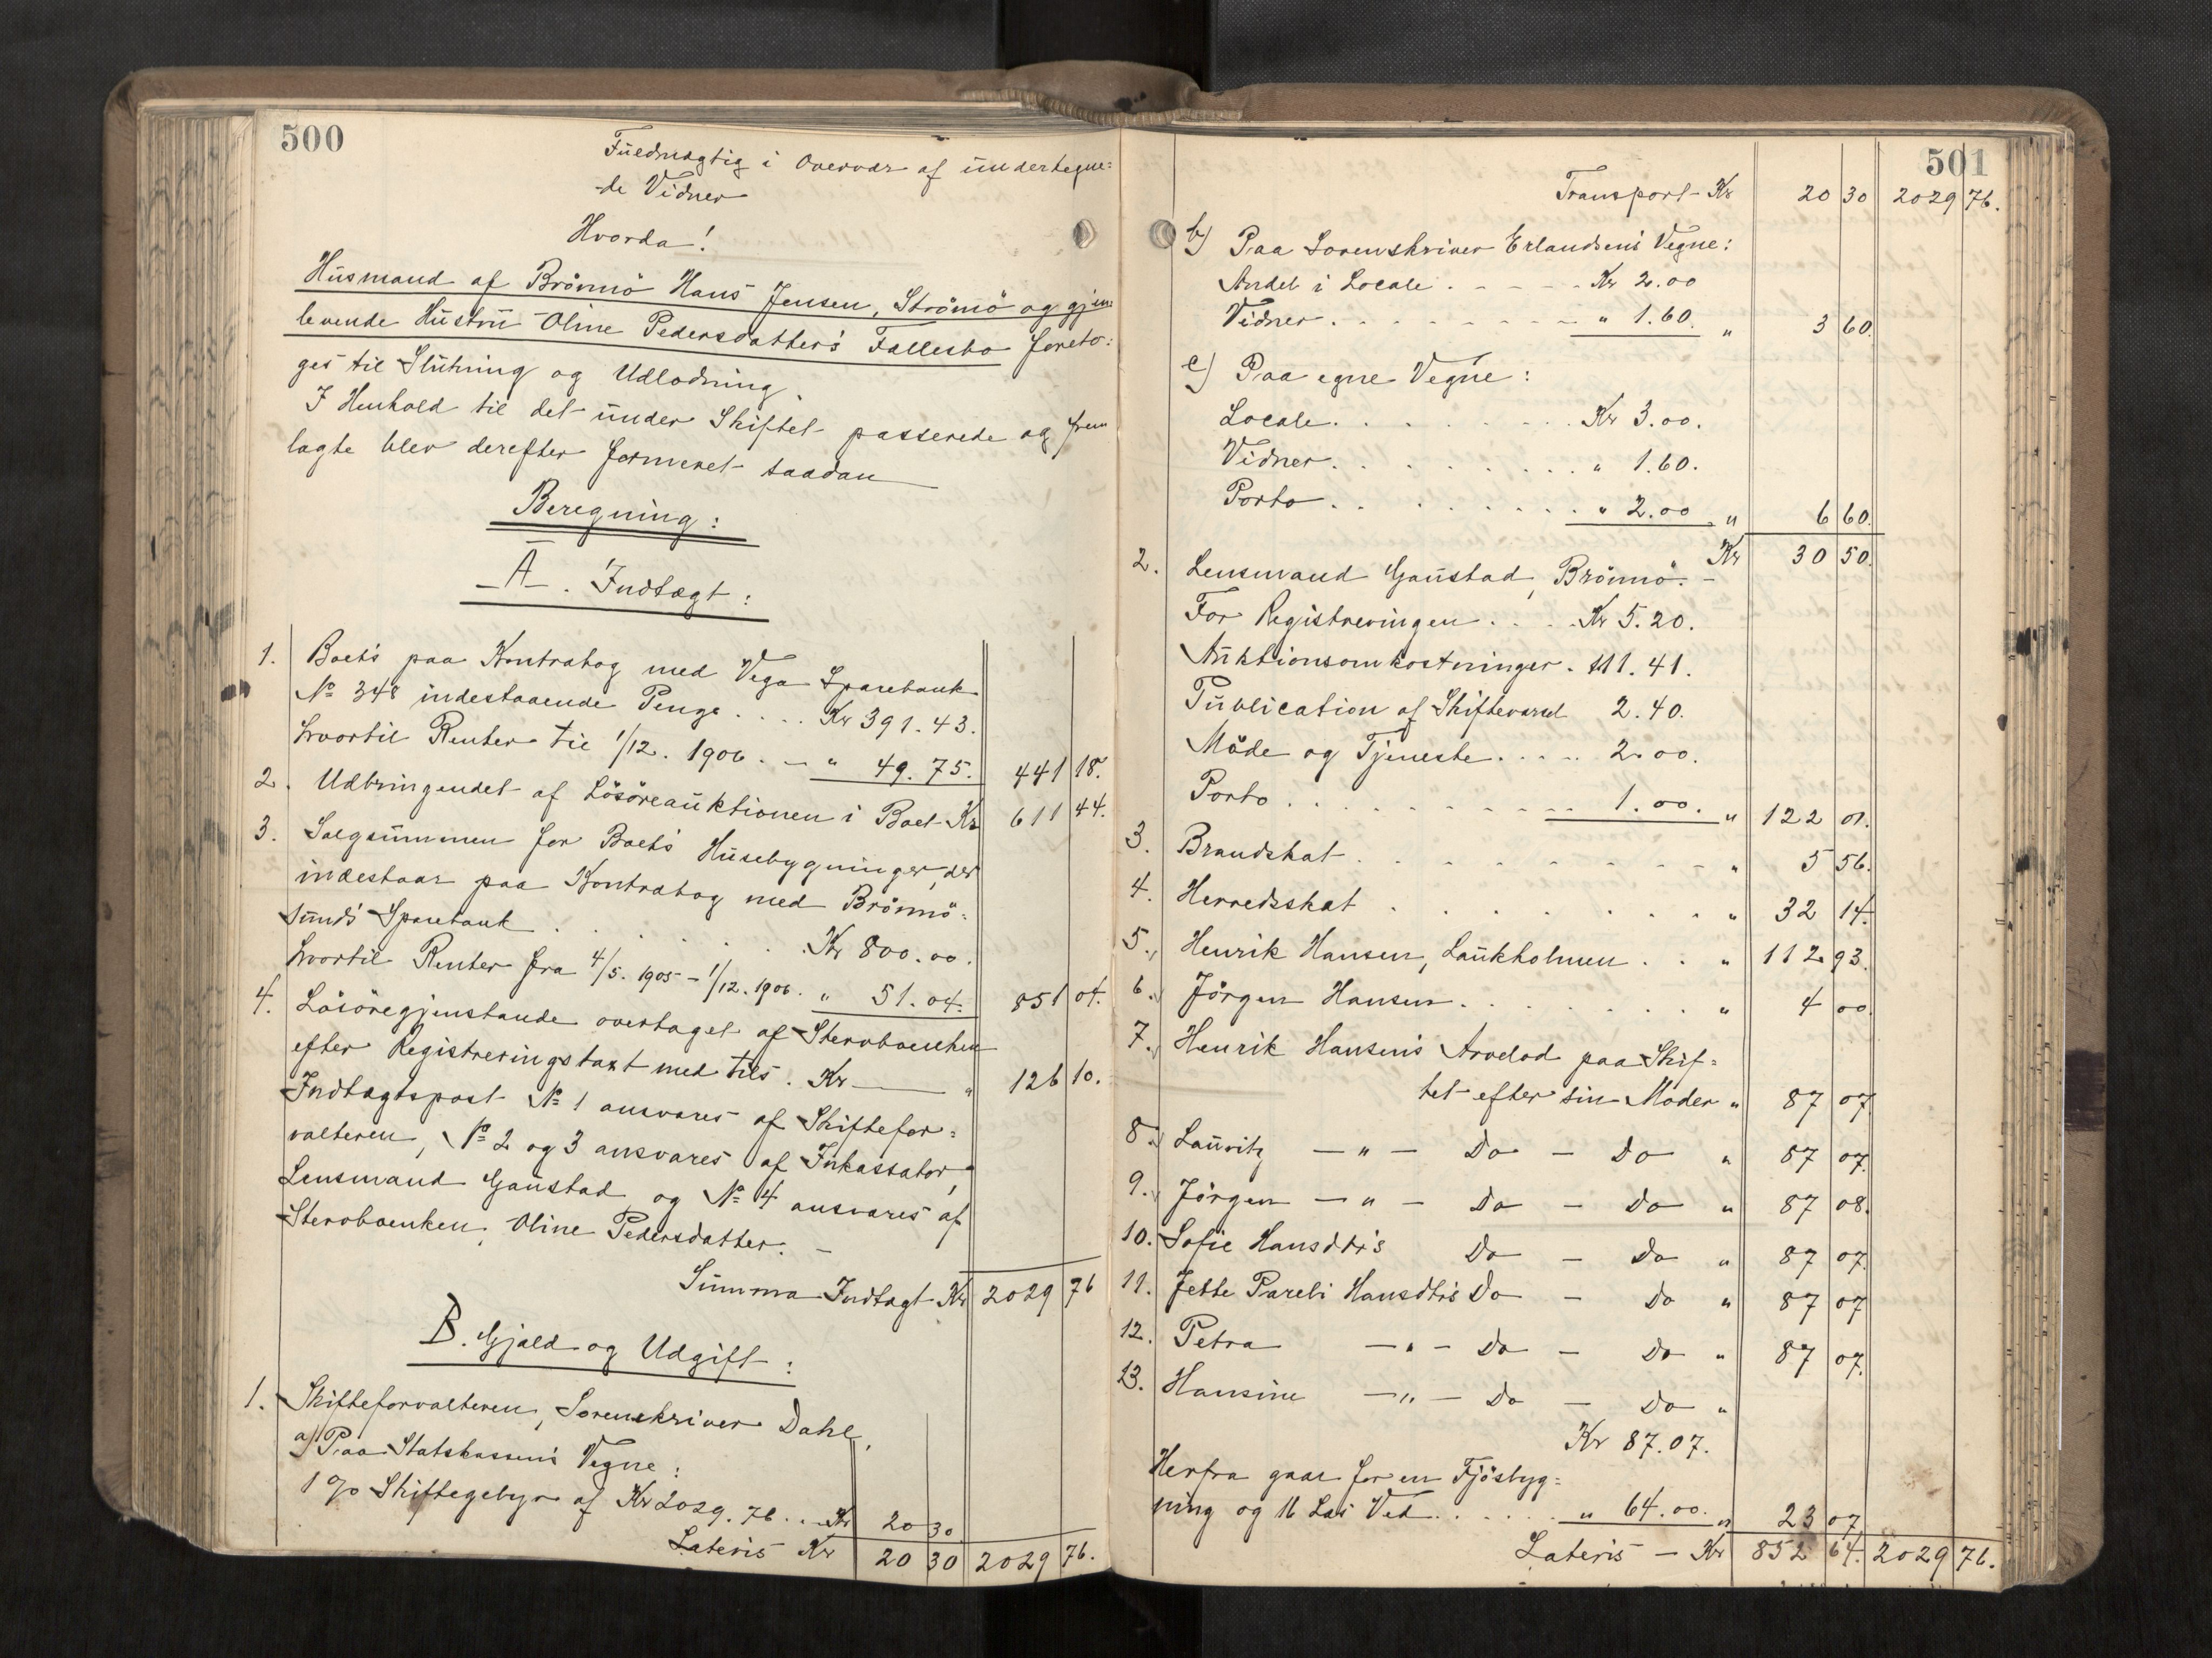 500
Fuldmægtig i Overvær af undertegne=
de Vidner
Hvorda!
Husmand af Brönnö Hans Jensen, Strömö og gjen=
levende Hustru Oline Pedersdatter's Fællesbo foreto=
ges til Slutning og Udlodning.
I Henhold til det under Skiftet passerede og frem
lagte blev derefter formeret saadan
Beregning:
A. Indtægt:
1. Boets paa Kontrabog med Vega Sparebank
No 348 indestaaende Penge .... Kr 391.43.
hvortil Renter til 1/12. 1906. - " 49.75. 441 18.
2. Udbringendet af Lösöreauktionen i Boet Kr 611 44.
3. Salgsummen for Boets Husebygninger, der
indestaar paa Kontrabog med Brönnö=
sunds Sparebank . . . . . . Kr 800.00.
hvortil Renter fra 4/5. 1905 - 1/12. 1906. " 51.04. 851 04.
4. Lösöregjenstande overtaget af Stervboenken
efter Registreringstaxt med tils. Kr — " 126 10.
Indtægtspost No 1 ansvares af Skiftefor=
valteren, No 2 og 3 ansvares af Inkassator,
Lensmand Gaustad og No 4 ansvares af
Stervboenken, Oline Pedersdatter. -
Summa Indtægt Kr 2029 76
B. Gjæld og Udgift:
1. Skifteforvalteren, Sorenskriver Dahl,
a) Paa Statskassens Vegne:
1 % Skiftegebyr af Kr 2029.76... Kr 20 30
Lateris Kr 20 30 2029 76.
501
Transport Kr 20 30 2029 76.
b) Paa Sorenskriver Erlandsens Vegne:
Andel i Locale . - - - - Kr 2.00
Vidner . . - - - - - " 1.60. " 3 60.
c) Paa egne Vegne:
Locale. . . . . . . Kr 3.00.
Vidner. . . . . . . . " 1.60.
Porto . . . . . . . . " 2.00 " 6 60.
Kr 30 50.
2. Lensmand Gaustad, Brönnö. -
For Registreringen . . . Kr 5.20.
Auktionsomkostninger . 111.41.
Publication af Skiftevarsel 2.40.
Möde og Tjeneste . . . . 2.00.
Porto . . . . . . . . . 1.00. " 122 01.
3. Brandskat . . . . . . . " 5 56.
4. Herredsskat . . . . . . . " 32 14.
5. Henrik Hansen, Laukholmen . . " 112 93.
6. Jörgen Hansen . . . . . . " 4 00.
7. Henrik Hansens Arvelod paa Skif=
tet efter sin Moder " 87 07
8. Lauritz — " — Do — Do " 87 07.
9. Jörgen — " — Do — Do " 87 08.
10. Sofie Hansdtr's Do — Do " 87 07.
11. Jette Pareli Hansdtrs Do — Do " 87 07
12. Petra — " — Do — Do " 87 07.
13. Hansine — " — Do — Do "
Kr 87.07.
Herfra gaar for en Fjösbyg=
ning og 16 Læs Ved . . . . . " 64.00. " 23 07
Lateris — Kr 852 64. 2029 76.